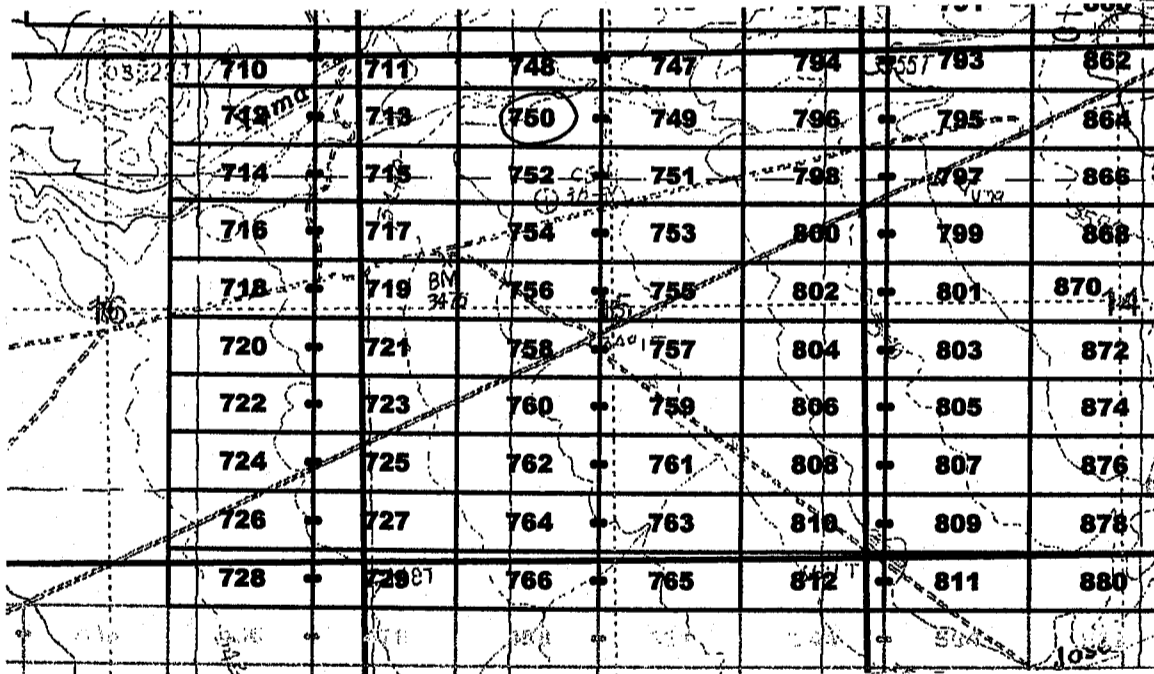 710 711 748 747 794 793 862
712 713 750 749 796 795 864
714 715 752 751 798 797 866
716 717 754 753 800 799 868
718 719 756 755 802 801 870
BM
16 15 14
720 721 758 757 804 803 872
722 723 760 759 806 805 874
724 725 762 761 808 807 876
726 727 764 763 810 809 878
728 729 766 765 812 811 880